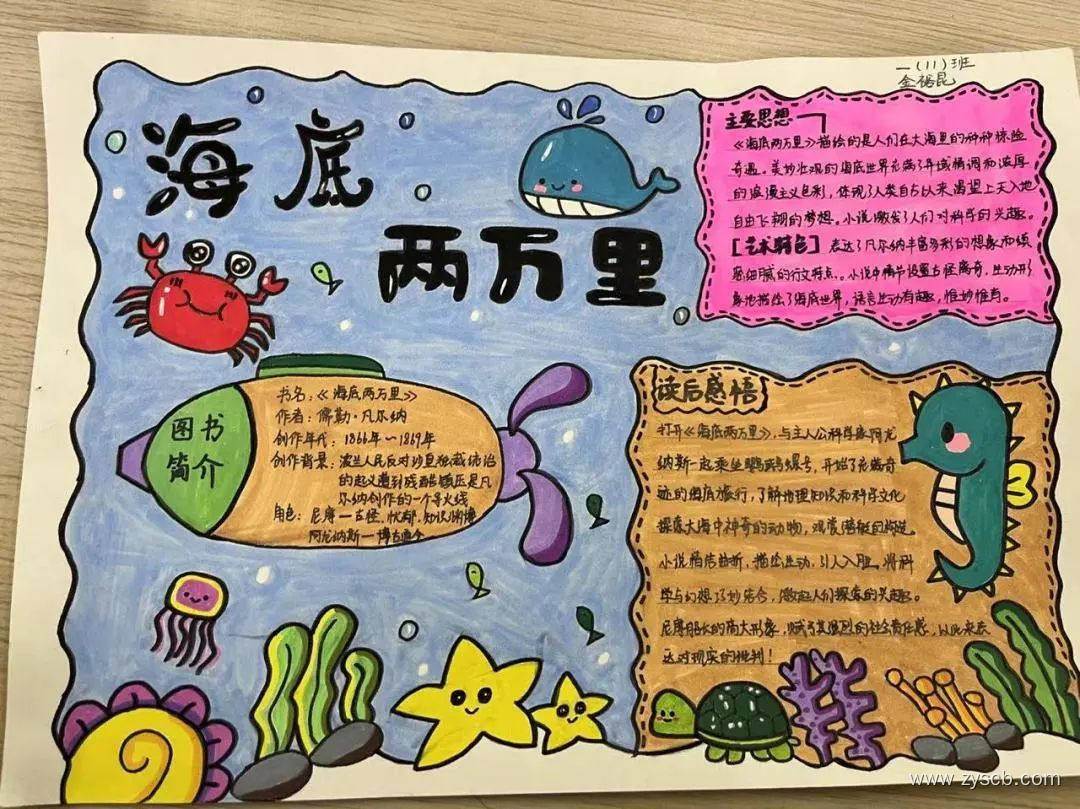 一(11)班
金裕昆
海底
两万里
主要思想
《海底两万里》描绘的是人们在大海里的种种惊险
奇遇。美妙壮观的海底世界充满了异域情调和浓厚
的浪漫主义色彩,体现了人类自古以来渴望上天入地
自由飞翔的梦想。小说激发了人们对科学的兴趣。
[艺术特色] 表达了凡尔纳丰富多彩的想象和缜
密细腻的行文特点。小说中情节设置古怪离奇,生动形
象地描绘了海底世界,语言生动有趣,惟妙惟肖。
图书
简介
书名:《海底两万里》
作者:儒勒·凡尔纳
创作年代:1866年~1869年
创作背景:波兰人民反对沙皇独裁统治
的起义遭到残酷镇压是凡
尔纳创作的一个导火线
角色:尼摩—古怪,忧郁,知识渊博
阿龙纳斯—博古通今
读后感悟
打开《海底两万里》,与主人公科学家阿龙
纳斯一起乘坐鹦鹉螺号,开始了充满奇
迹的海底旅行,了解地理知识和科学文化
探索大海中神奇的动物,观赏潜艇的构造。
小说情节曲折,描绘生动,引人入胜,将科
学与幻想巧妙结合,激起人们探索的兴趣。
尼摩船长的高大形象,赋予其强烈的社会责任感,以此来表
达对现实的批判!
www.zyscb.com